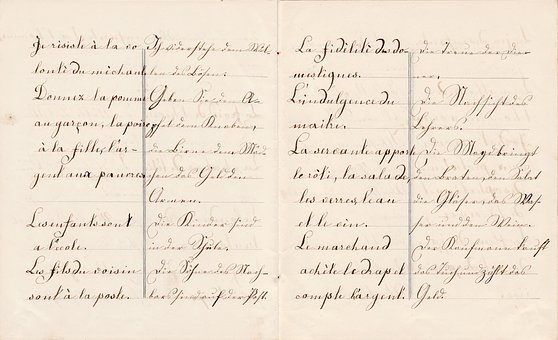 Je résiste à la vo-
lonté du méchant
Donnez la pomme
au garçon, la poire
à la fille, l'ar-
gent aux pauvres
Les enfants sont
a l'école.
Les fils du voisin
sont à la poste.
Ich widerstehe dem Wil-
len des Bösen.
Geben Sie den A-
pfel dem Knaben,
die Birne dem Mäd-
chen das Geld den
Armen.
Die Kinder sind
in der Schule.
Die Söhne des Nach-
bars sind auf der Post.
La fidélité des do-
mestiques.
L'indulgence du
maître.
La servante apporte
le rôti, la salade,
les verres, l'eau
et le vin.
Le marchand
achète le drap et
compte l'argent.
Die Treue der Die-
ner.
Die Nachsicht des
Lehrers.
Die Magd bringt
den Braten, den Salat
die Gläser, das Was-
ser und den Wein.
Der Kaufmann kauft
das Tuch und zählt das
Geld.